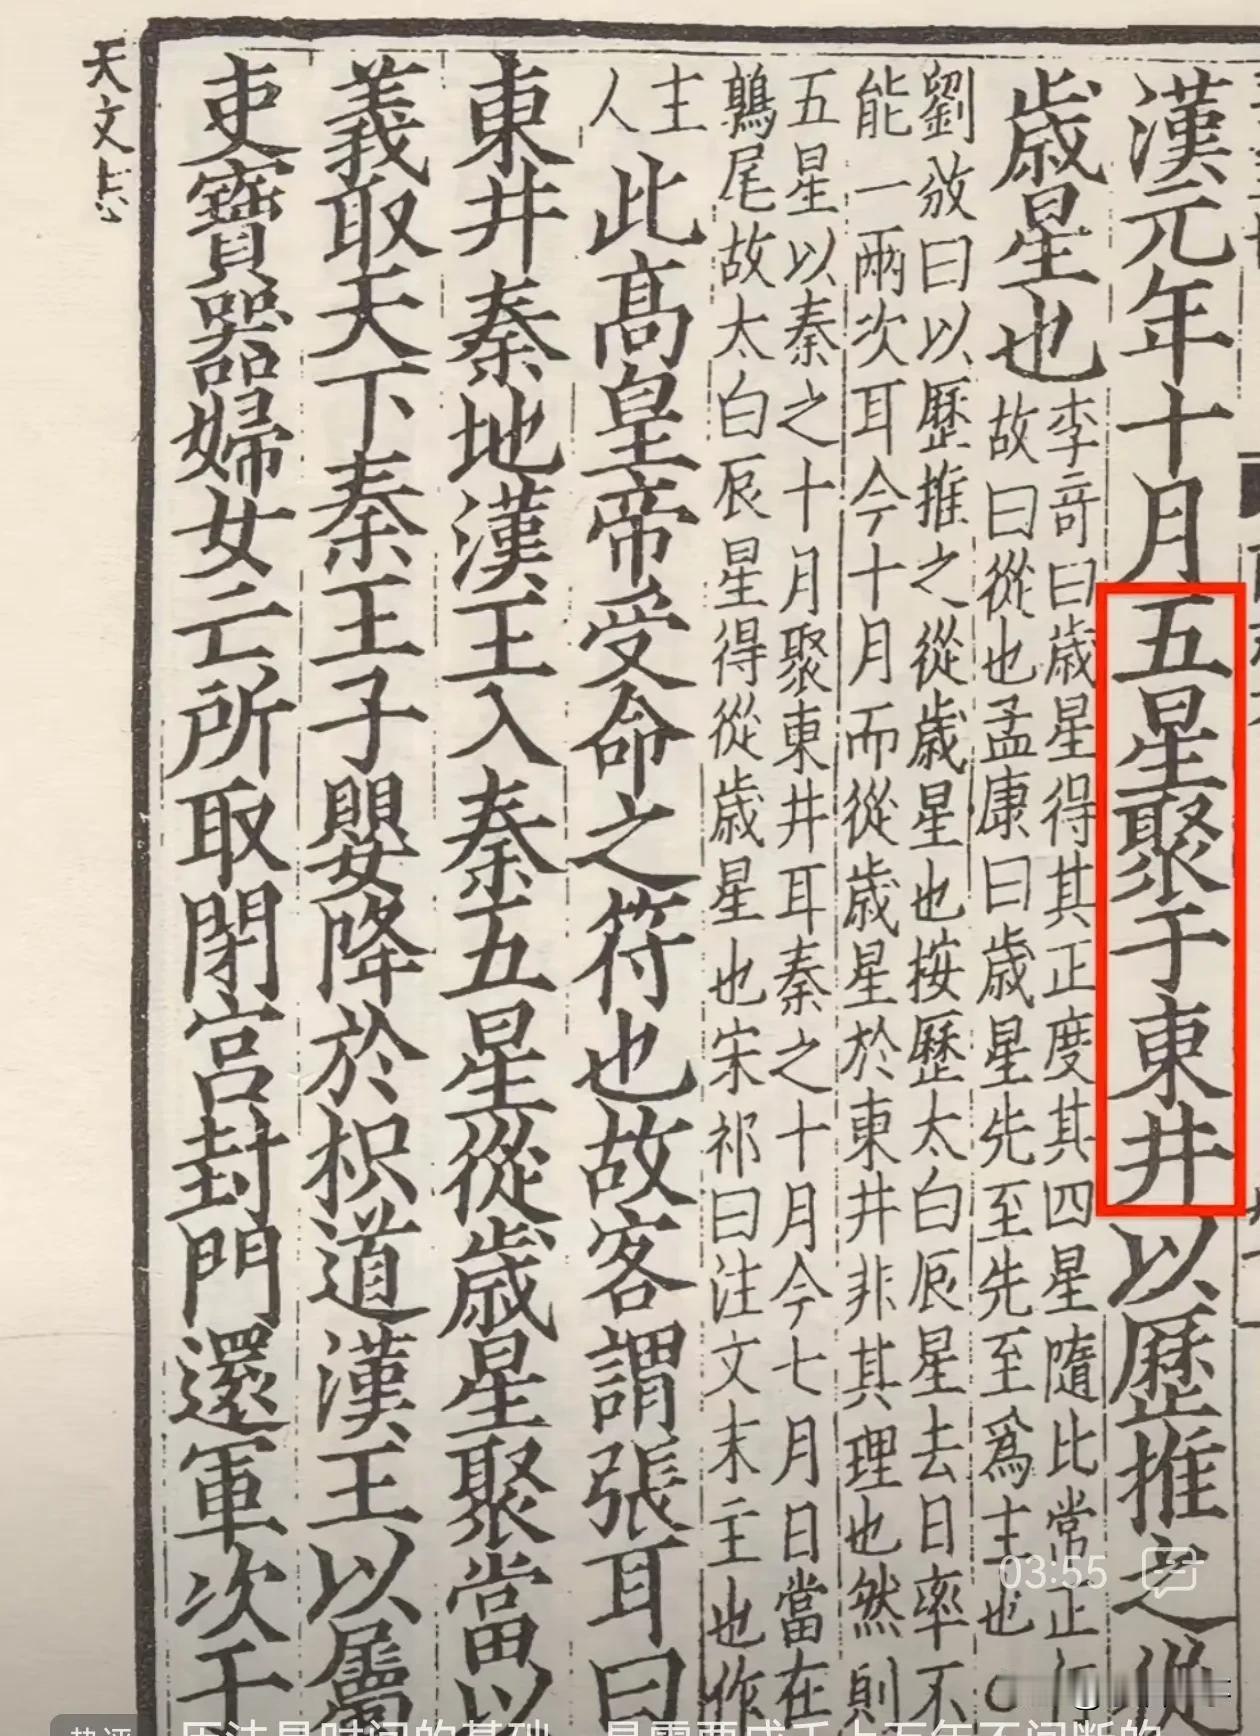 漢元年十月五星聚于東井以歷推之從
歲星也
李奇曰歲星得其正度其四星隨比常正
故曰從也孟康曰歲星先至先至爲主也
劉攽曰以歷推之從歲星也按歷太白辰星去日率不
能一兩次耳今十月而從歲星於東井非其理也然則
五星以秦之十月聚東井耳秦之十月今七月日當在
鶉尾故太白辰星得從歲星也宋祁曰注文末主也作
主
人
此高皇帝受命之符也故客謂張耳曰
東井秦地漢王入秦五星從歲星聚當以
義取天下秦王子嬰降於枳道漢王以屬
吏寶器婦女亡所取閉宮封門還軍次于
天文志
03:55
热评
历法是时间的基础